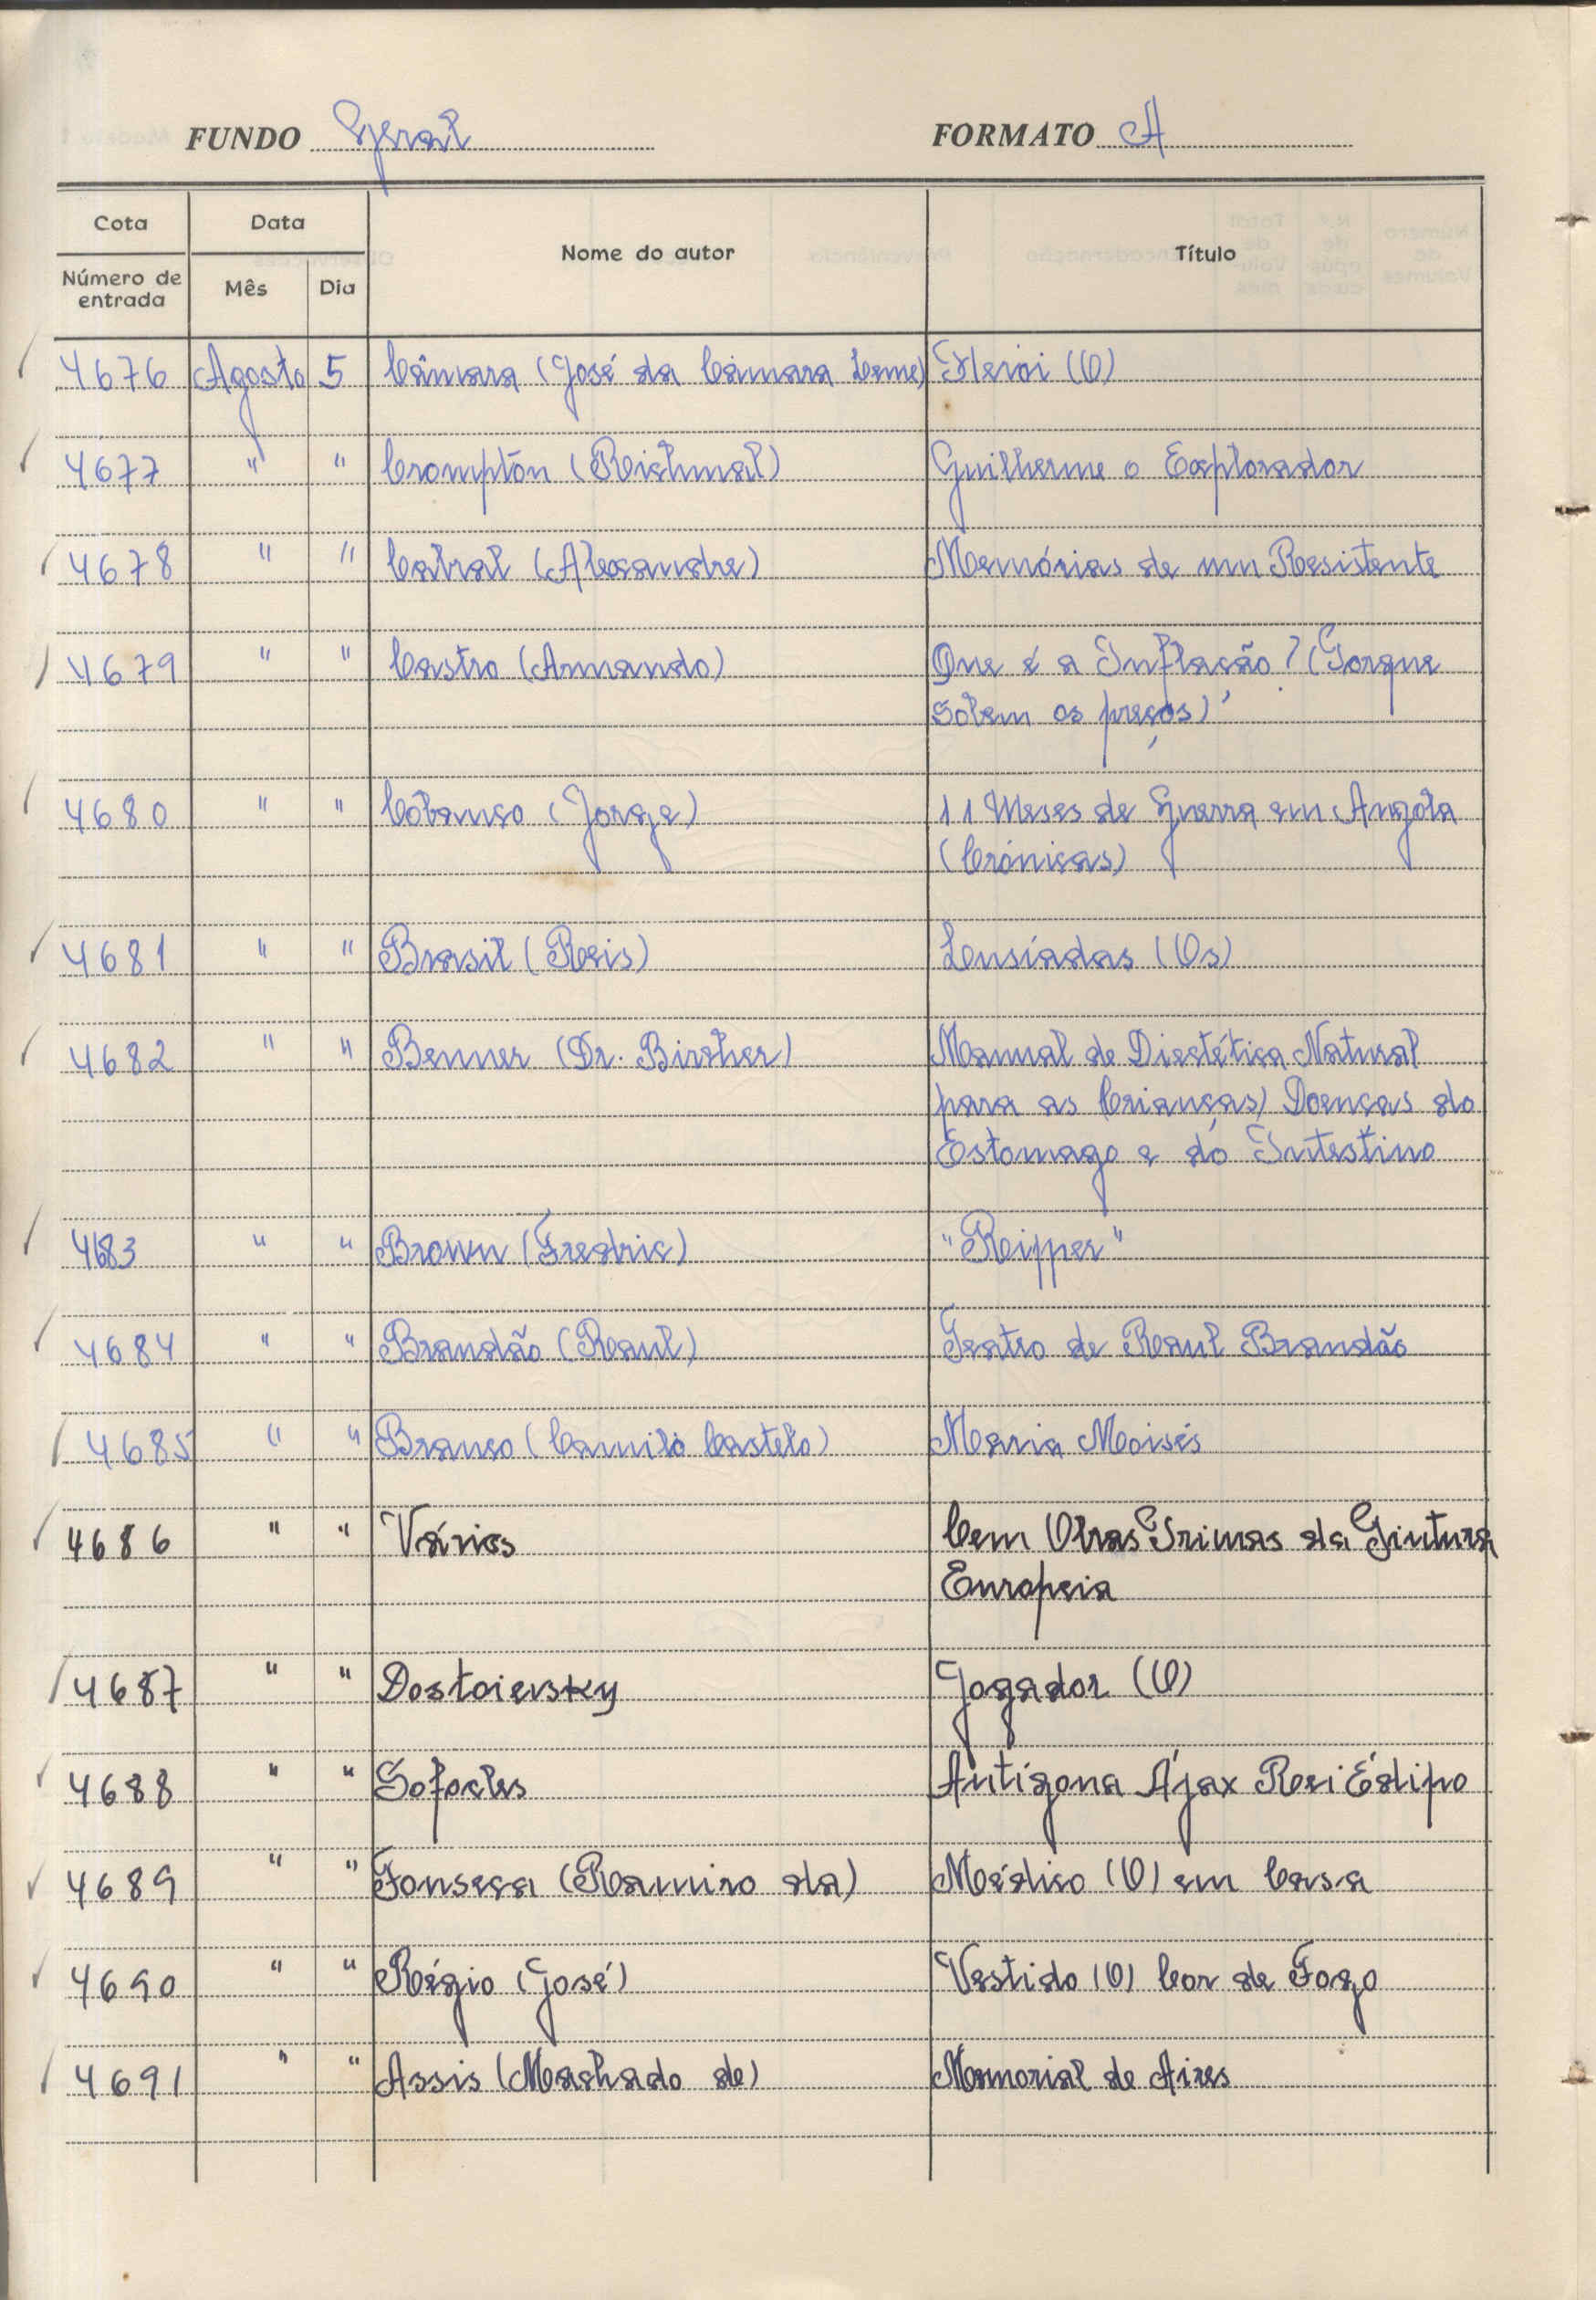 FUNDO Geral FORMATO A
Cota Data Nome do autor Título
Número de entrada Mês Dia
4676 Agosto 5 Câmara (José da Câmara Leme) Herói (O)
4677 " " Crompton (Reichmal) Guilherme o Explorador
4678 " " Cabral (Alexandre) Memórias de um Resistente
4679 " " Castro (Armando) Que é a Inflação? (Porque
Sobem os preços)
4680 " " Cobanco (Jorge) 11 Meses de Guerra em Angola
(Crónicas)
4681 " " Brasil (Reis) Lusíadas (Os)
4682 " " Benner (Dr. Bircher) Manual de Dietética Natural
para as Crianças) Doenças do
Estomago e do Intestino
4683 " " Brown (Fredric) "Reipper"
4684 " " Brandão (Raul) Teatro de Raul Brandão
4685 " " Branco (Camilo Castelo) Maria Moisés
4686 " " Vários Cem Obras Primas da Pintura
Europeia
4687 " " Dostoievsky Jogador (O)
4688 " " Sofocles Antígona Ájax Rei Édipo
4689 " " Fonseca (Ramiro da) Médico (O) em Casa
4690 " " Régio (José) Vestido (O) Cor de Fogo
4691 " " Assis (Machado de) Memorial de Aires